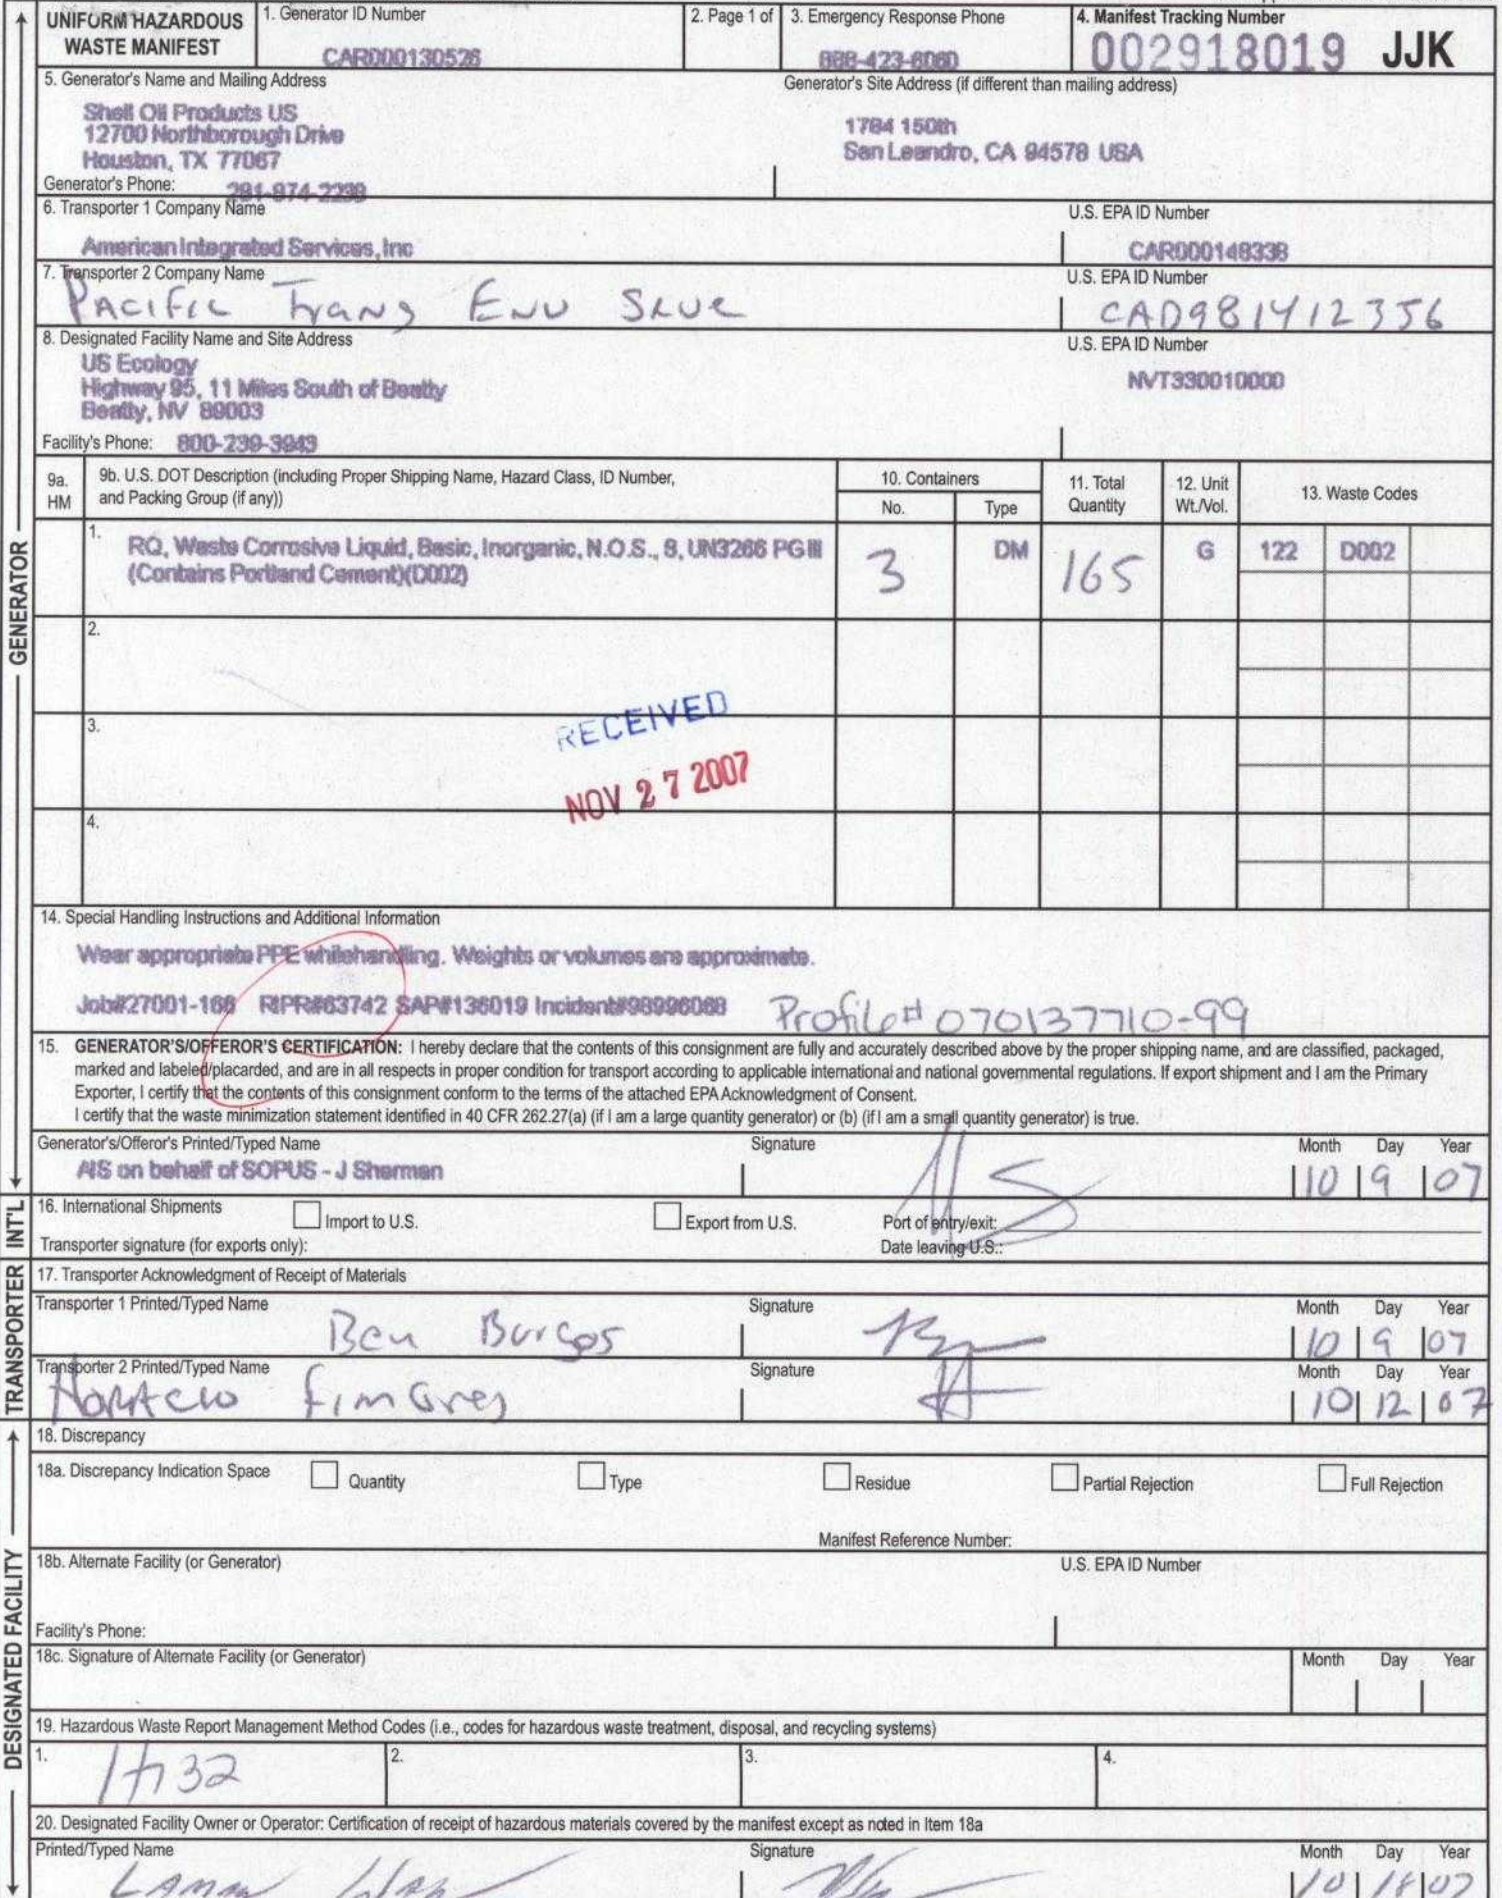 UNIFORM HAZARDOUS WASTE MANIFEST
1. Generator ID Number
CAR000130526
2. Page 1 of
3. Emergency Response Phone
888-423-6060
4. Manifest Tracking Number
002918019 JJK
5. Generator's Name and Mailing Address
Generator's Site Address (if different than mailing address)
Shell Oil Products US
12700 Northborough Drive
Houston, TX 77067
1784 150th
San Leandro, CA 94578 USA
Generator's Phone: 281-874-2239
6. Transporter 1 Company Name
U.S. EPA ID Number
American Integrated Services, Inc
CAR000148338
7. Transporter 2 Company Name
U.S. EPA ID Number
PACIFIC Trans ENV
CAD981412356
8. Designated Facility Name and Site Address
U.S. EPA ID Number
US Ecology
Highway 95, 11 Miles South of Beatty
Beatty, NV 89003
NVT330010000
Facility's Phone: 800-239-3943
9a. HM
9b. U.S. DOT Description (including Proper Shipping Name, Hazard Class, ID Number, and Packing Group (if any))
10. Containers
No.
Type
11. Total Quantity
12. Unit Wt./Vol.
13. Waste Codes
1.
RQ, Waste Corrosive Liquid, Basic, Inorganic, N.O.S., 8, UN3266 PG III
(Contains Portland Cement)(D002)
3
DM
165
G
122
D002
2.
3.
RECEIVED
NOV 27 2007
4.
14. Special Handling Instructions and Additional Information
Wear appropriate PPE whilehandling. Weights or volumes are approximate.
Job#27001-166 RIPR#63742 SAP#136019 Incident#98996068 Profile# 070137710-99
15. GENERATOR'S/OFFEROR'S CERTIFICATION: I hereby declare that the contents of this consignment are fully and accurately described above by the proper shipping name, and are classified, packaged,
marked and labeled/placarded, and are in all respects in proper condition for transport according to applicable international and national governmental regulations. If export shipment and I am the Primary
Exporter, I certify that the contents of this consignment conform to the terms of the attached EPA Acknowledgment of Consent.
I certify that the waste minimization statement identified in 40 CFR 262.27(a) (if I am a large quantity generator) or (b) (if I am a small quantity generator) is true.
Generator's/Offeror's Printed/Typed Name
Signature
Month Day Year
AIS on behalf of SOPUS - J Sherman
10 9 07
16. International Shipments
Import to U.S.
Export from U.S.
Port of entry/exit:
Transporter signature (for exports only):
Date leaving U.S.:
17. Transporter Acknowledgment of Receipt of Materials
Transporter 1 Printed/Typed Name
Signature
Month Day Year
Ben Burgos
10 9 07
Transporter 2 Printed/Typed Name
Signature
Month Day Year
Horacio Fimbres
10 12 07
18. Discrepancy
18a. Discrepancy Indication Space
Quantity
Type
Residue
Partial Rejection
Full Rejection
Manifest Reference Number:
18b. Alternate Facility (or Generator)
U.S. EPA ID Number
Facility's Phone:
18c. Signature of Alternate Facility (or Generator)
Month Day Year
19. Hazardous Waste Report Management Method Codes (i.e., codes for hazardous waste treatment, disposal, and recycling systems)
1.
H132
2.
3.
4.
20. Designated Facility Owner or Operator: Certification of receipt of hazardous materials covered by the manifest except as noted in Item 18a
Printed/Typed Name
Signature
Month Day Year
10 18 07
GENERATOR
INT'L
TRANSPORTER
DESIGNATED FACILITY